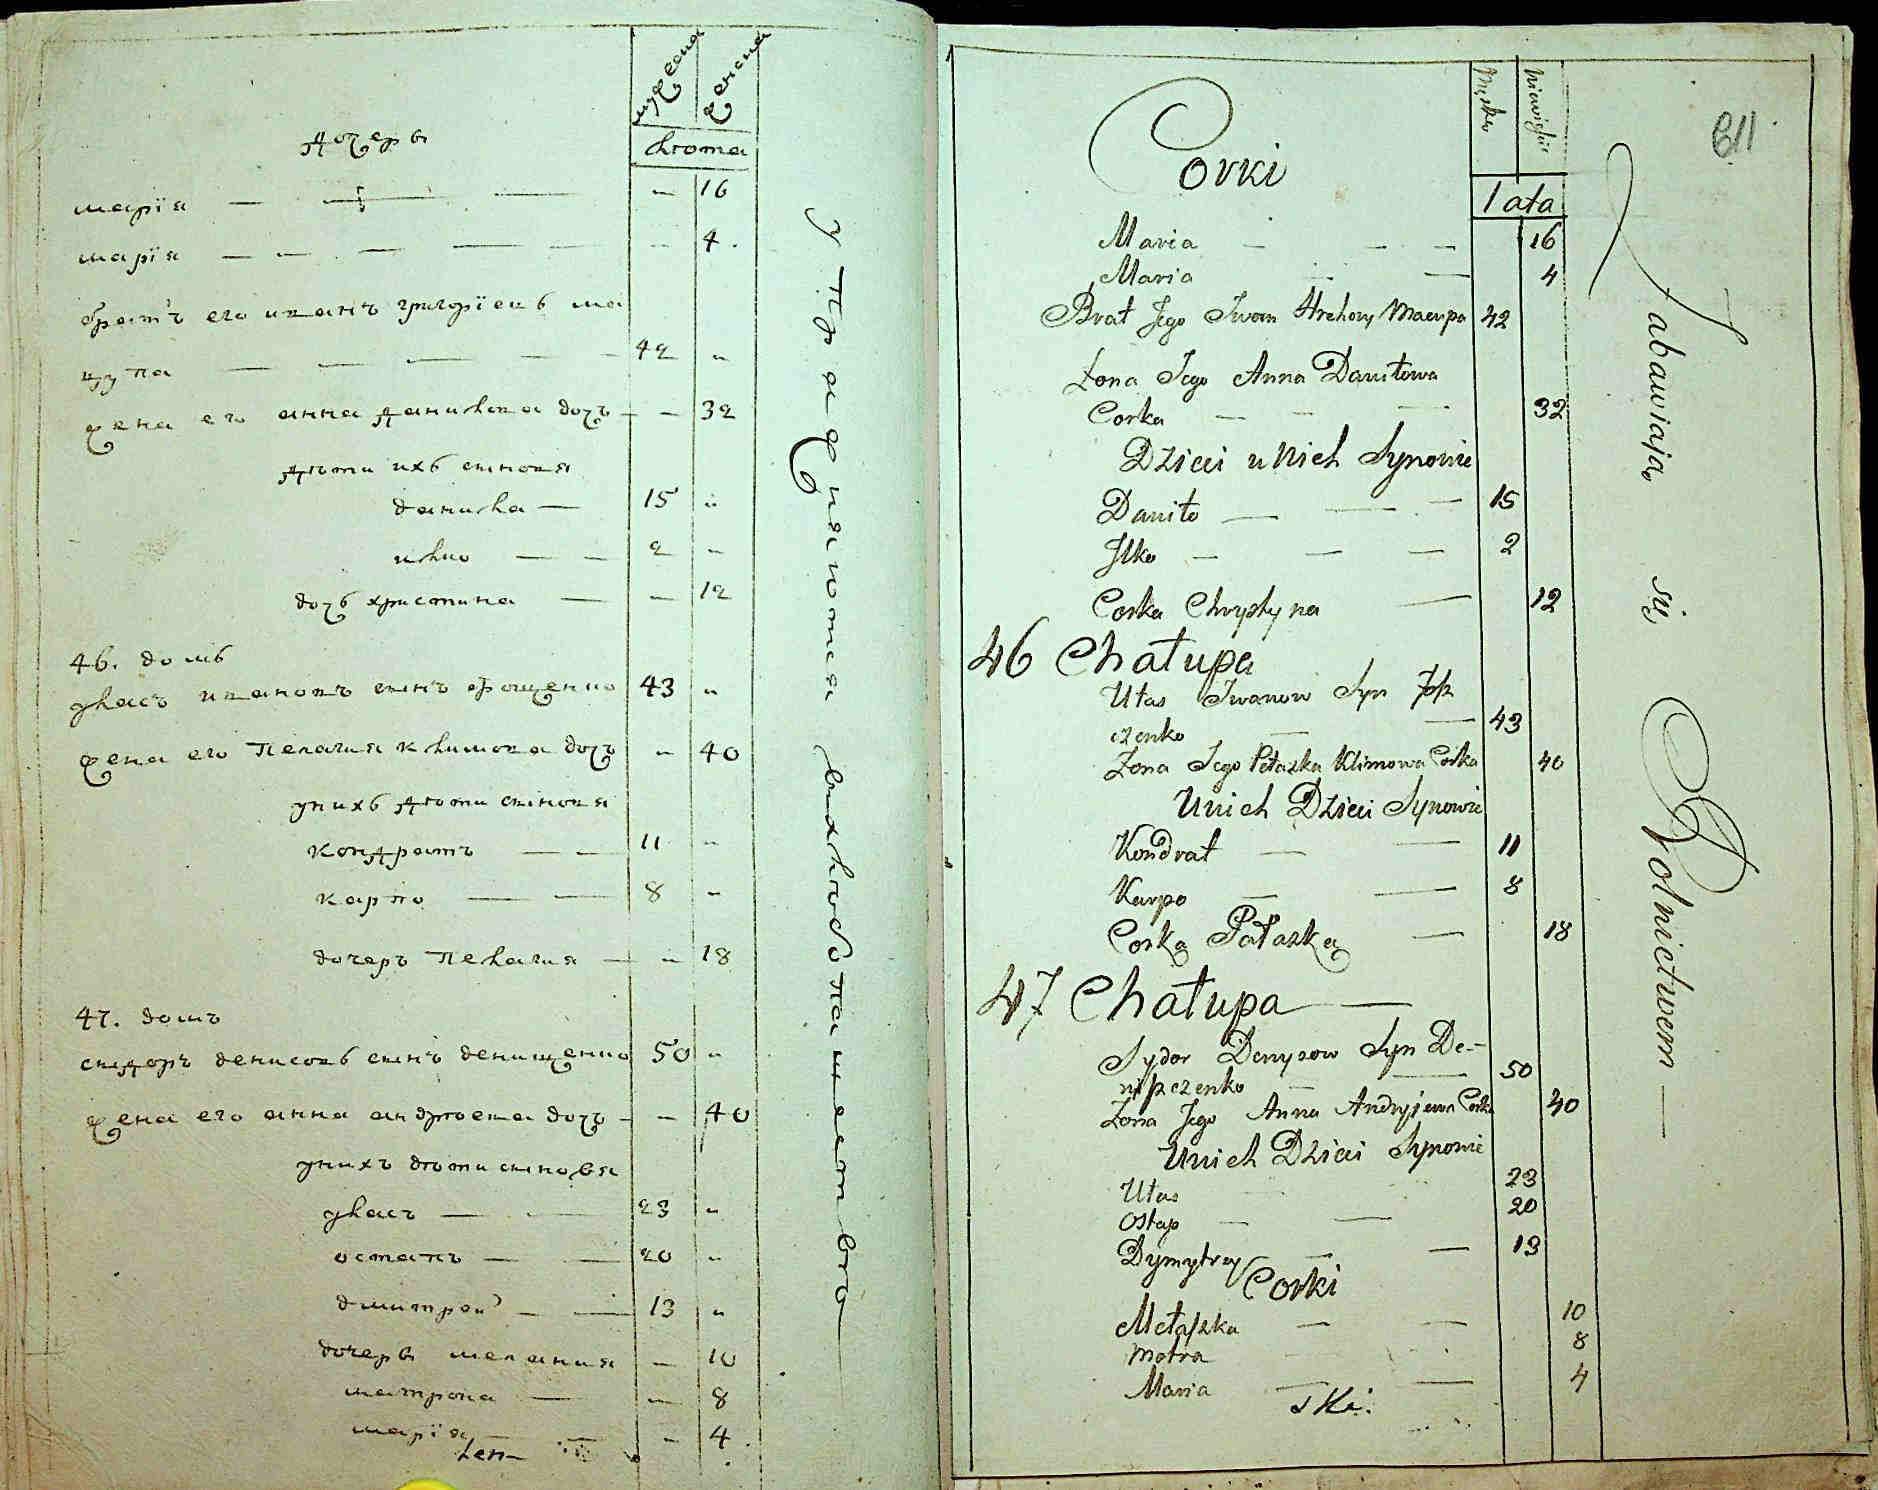 мужеска
женска
дочеры
лѣта
марїя — — — „ 16
марїя — — — — „ 4.
братъ его иванъ григорїевъ ма
цупа — — — — 42 „
жена его анна данилова дочъ — „ 32
дѣти ихъ синовя
данила — 15 „
илко — — 2 „
дочъ христина — „ 12
46. домъ
уласъ ивановъ синъ 43 „
жена его пелагия климова дочъ „ 40
унихъ дѣти синовя
кондратъ — — 11 „
карпо — — 8 „
дочеръ пелагия — „ 18
47. домъ
сидоръ денисовъ синъ денищенко 50 „
жена его анна андрѣева дочъ — „ 40
унихъ дѣти синовья
уласъ — — 23 „
остапъ — — 20 „
дмитрей — — 13 „
дочеры мелания „ 10
матрона — „ 8
марїя — — „ 4
упражняются вихлѣбопашество
Męska
Niewieścia
611
Corki
lata
Maria — — — 16
Maria — — 4
Brat Jego Iwan Hrehory Macupa 42
Żona Jego Anna Daniłowa
Corka — — — 32
Dzieci u Nich Synowie
Daniło — — — 15
Jlko — — — 2
Corka Chrystyna — 12
46 Chałupa
Ułas Iwanow Syn
czenko — — 43
Żona Jego Pełaszka Klimowa Corka 40
U nich Dzieci Synowie
Kondrat — — 11
Karpo — — 8
Corka Pałaszka — 18
47 Chałupa —
Sydor Denysow Syn De-
niszczenko — — 50
Żona Jego Anna Andryjewa Corka 40
U nich Dzieci Synowie
Ułas 23
Ostap — — 20
Dymytry — — 13
Corki
Mełaszka — — 10
Motra 8
Maria — — 4
Zabawiaja się Rolnictwem —